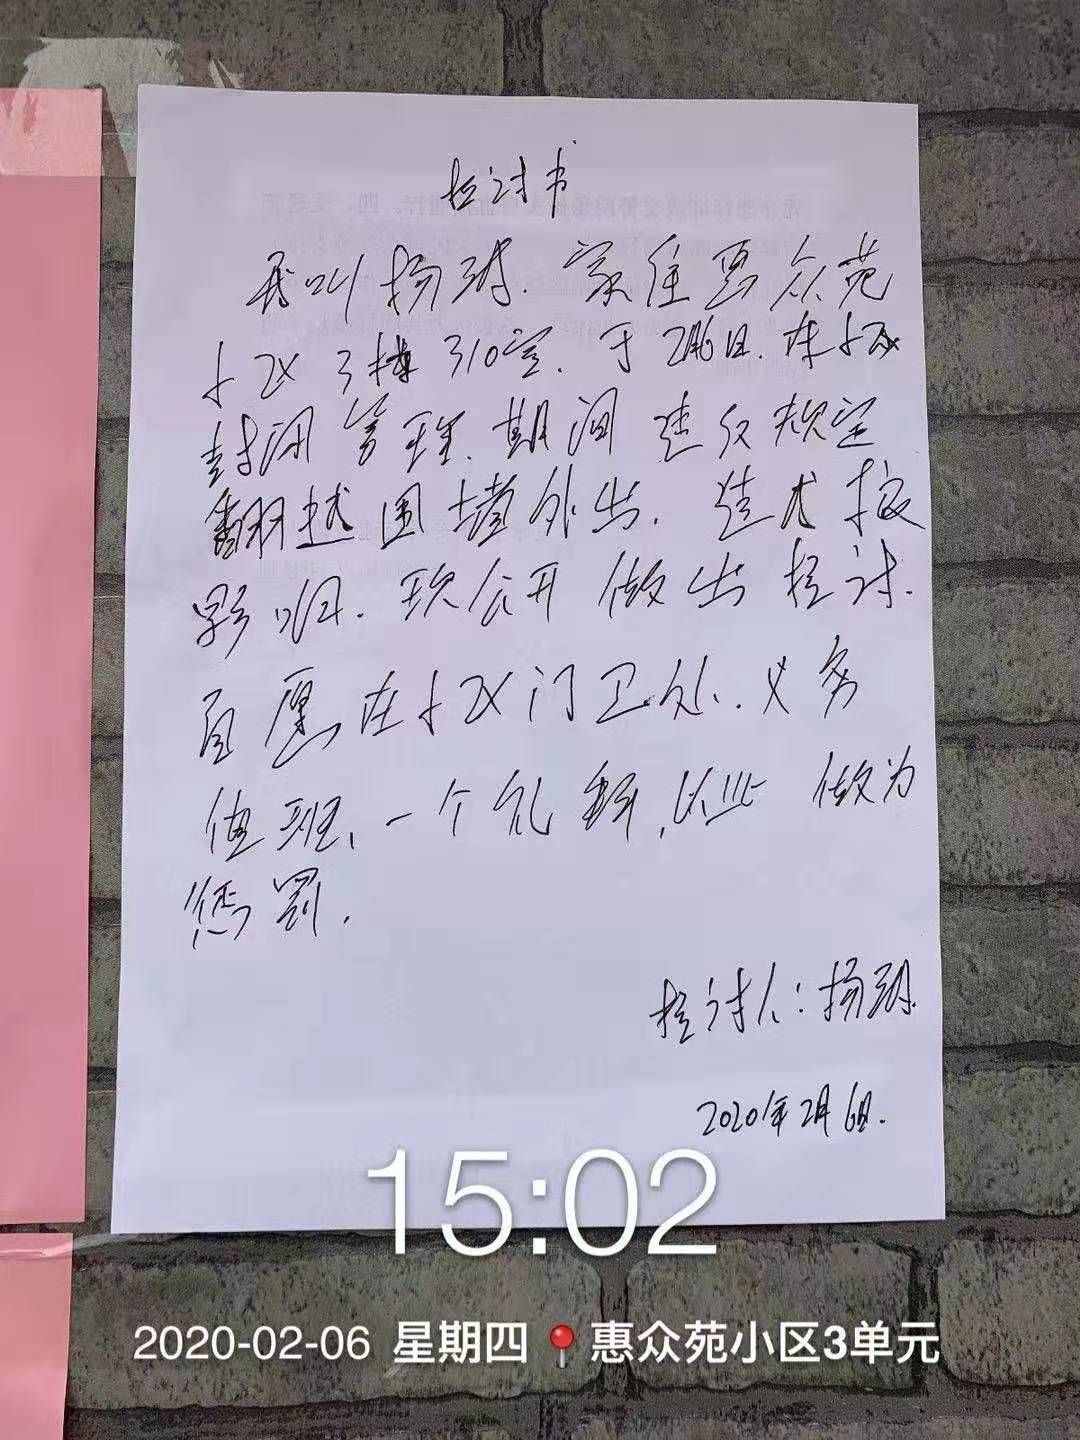 检讨书
我叫杨球.家住惠众苑
小区3栋310室.于2月6日.在小区
封闭管理.期间违反规定
翻越围墙外出.造成较
影响.现公开做出检讨.
自愿在小区门卫处.义务
值班,一个礼拜,以此做为
惩罚.
检讨人:杨球.
2020年2月6日.
15:02
2020-02-06 星期四 惠众苑小区3单元